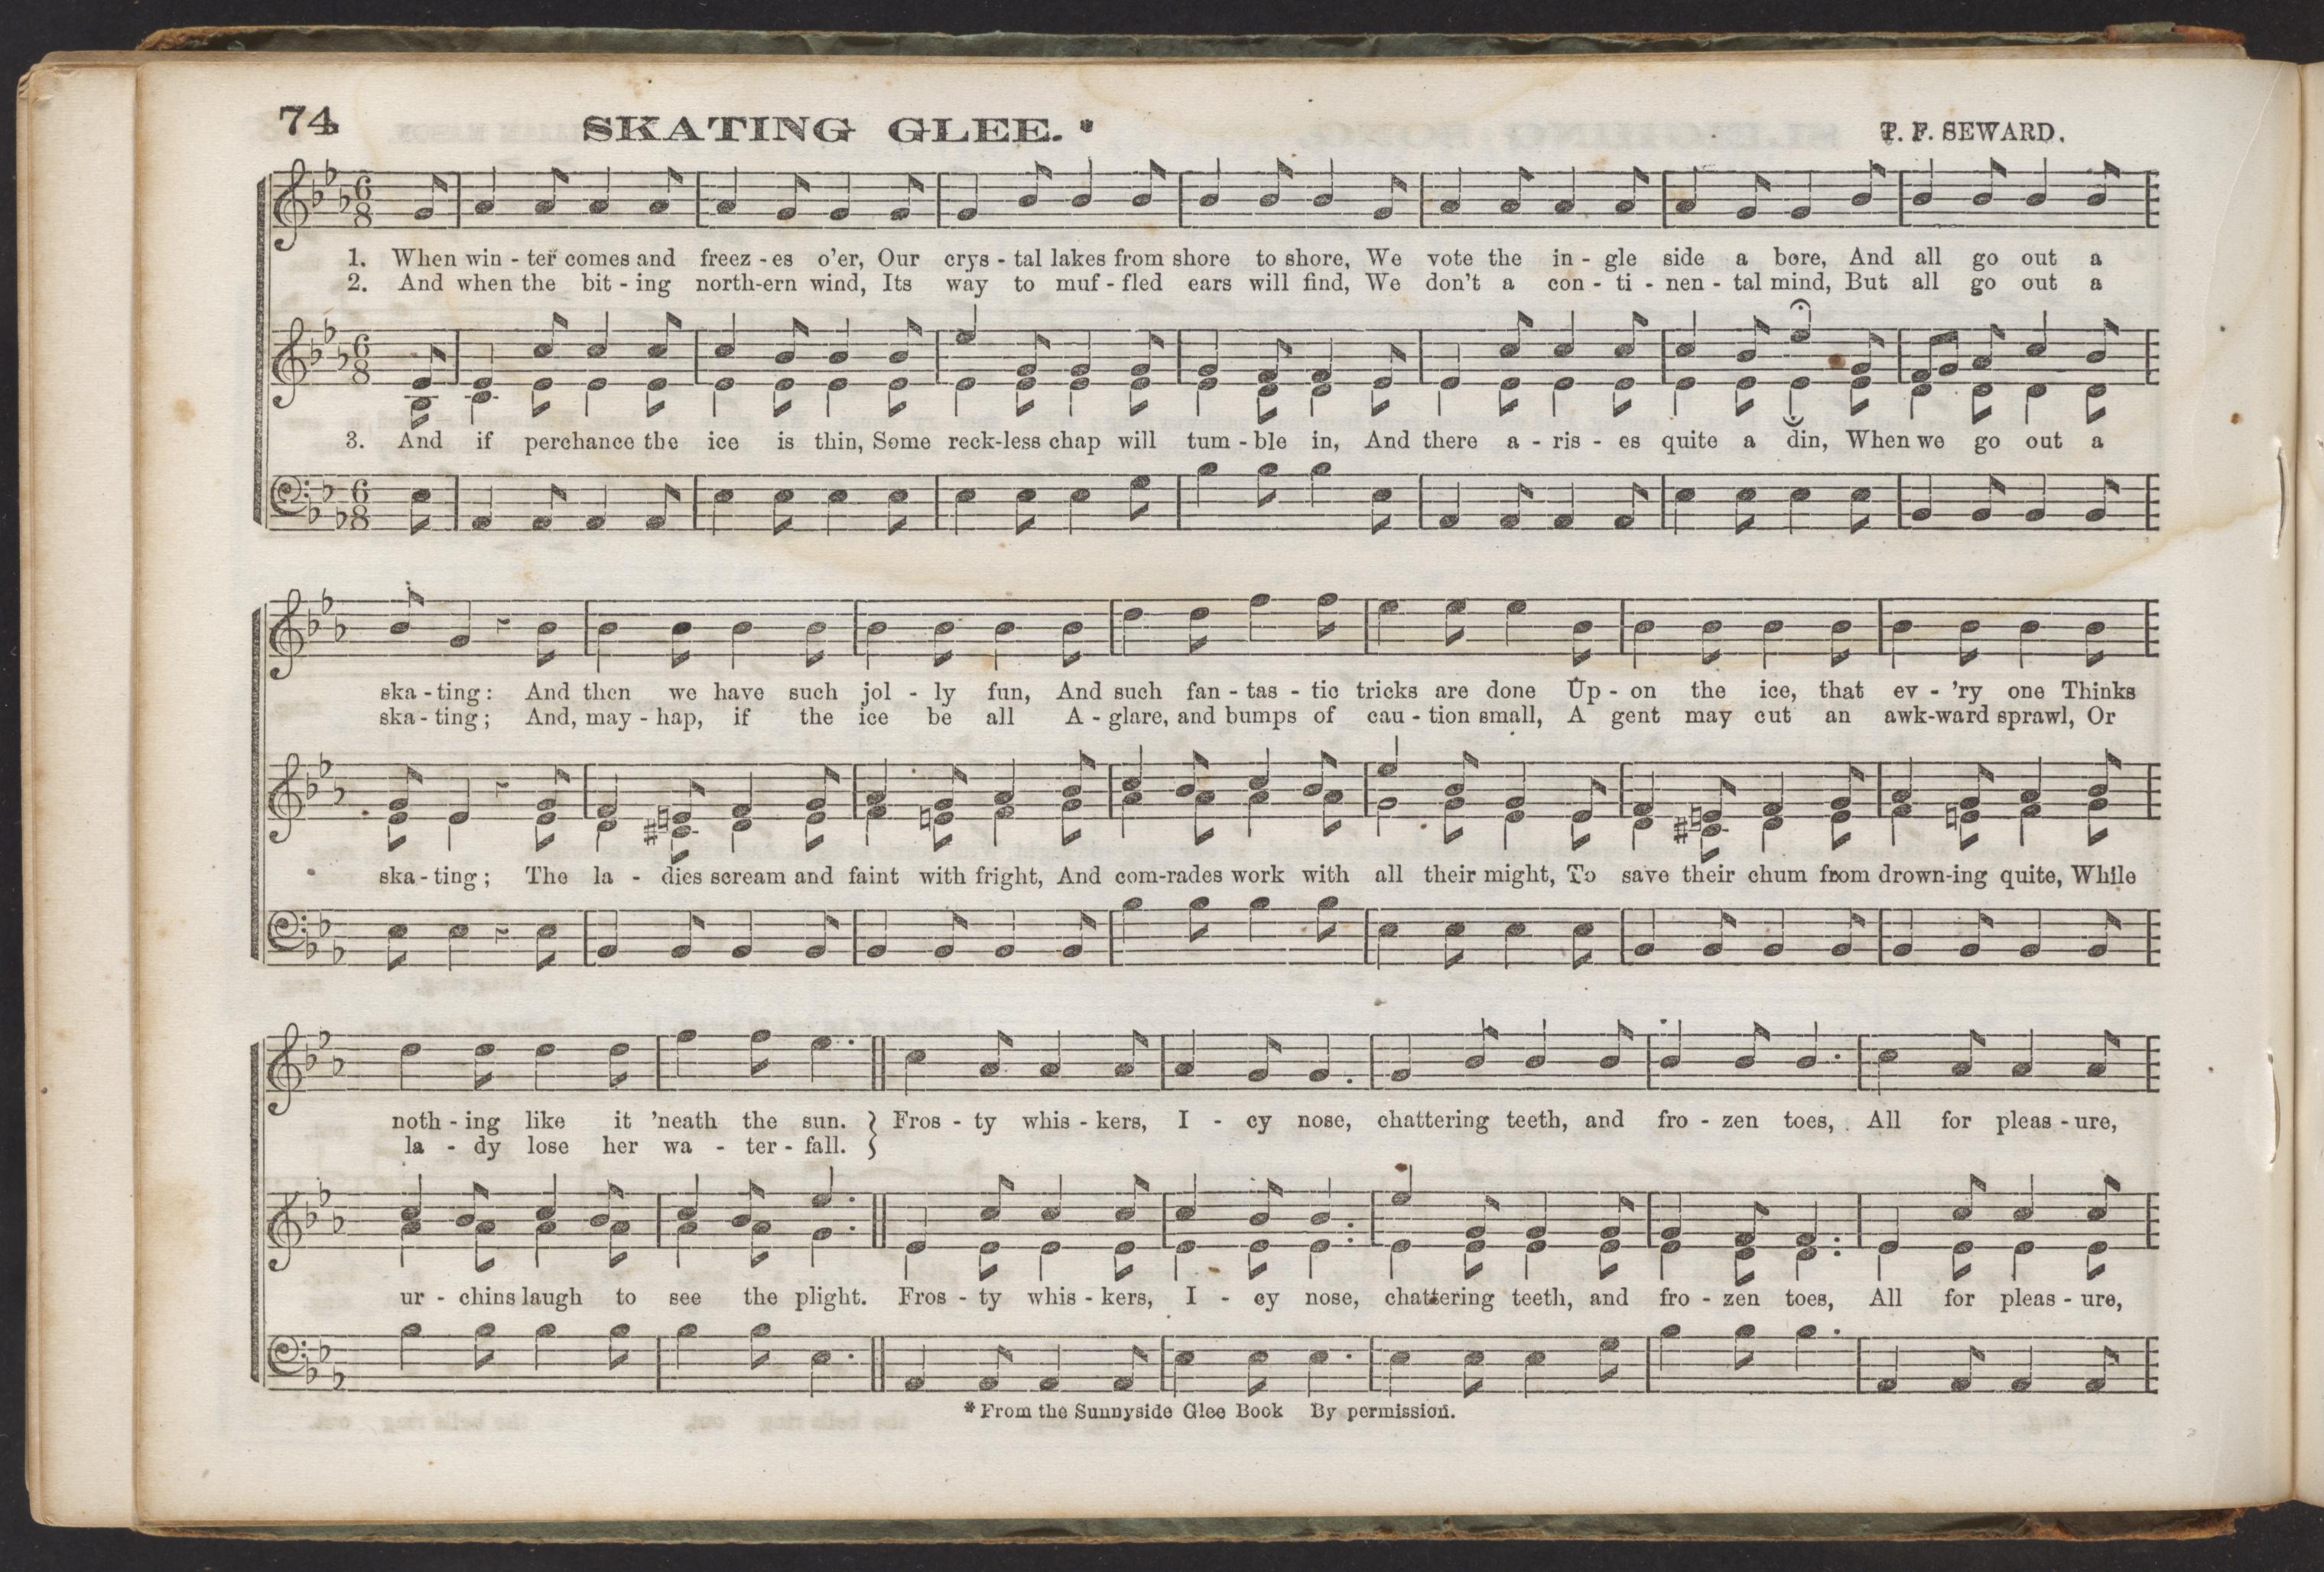 74 SKATING GLEE.* T. F. SEWARD.
1. When win - ter comes and freez - es o'er, Our crys - tal lakes from shore to shore, We vote the in - gle side a bore, And all go out a
2. And when the bit - ing north-ern wind, Its way to muf - fled ears will find, We don't a con - ti - nen - tal mind, But all go out a
3. And if perchance the ice is thin, Some reck-less chap will tum - ble in, And there a - ris - es quite a din, When we go out a
ska - ting: And then we have such jol - ly fun, And such fan - tas - tic tricks are done Up - on the ice, that ev - 'ry one Thinks
ska - ting; And, may - hap, if the ice be all A - glare, and bumps of cau - tion small, A gent may cut an awk-ward sprawl, Or
ska - ting; The la - dies scream and faint with fright, And com-rades work with all their might, To save their chum from drown-ing quite, While
noth - ing like it 'neath the sun. } Fros - ty whis - kers, I - cy nose, chattering teeth, and fro - zen toes, All for pleas - ure,
la - dy lose her wa - ter - fall. }
ur - chins laugh to see the plight. Fros - ty whis - kers, I - cy nose, chattering teeth, and fro - zen toes, All for pleas - ure,
* From the Sunnyside Glee Book By permission.